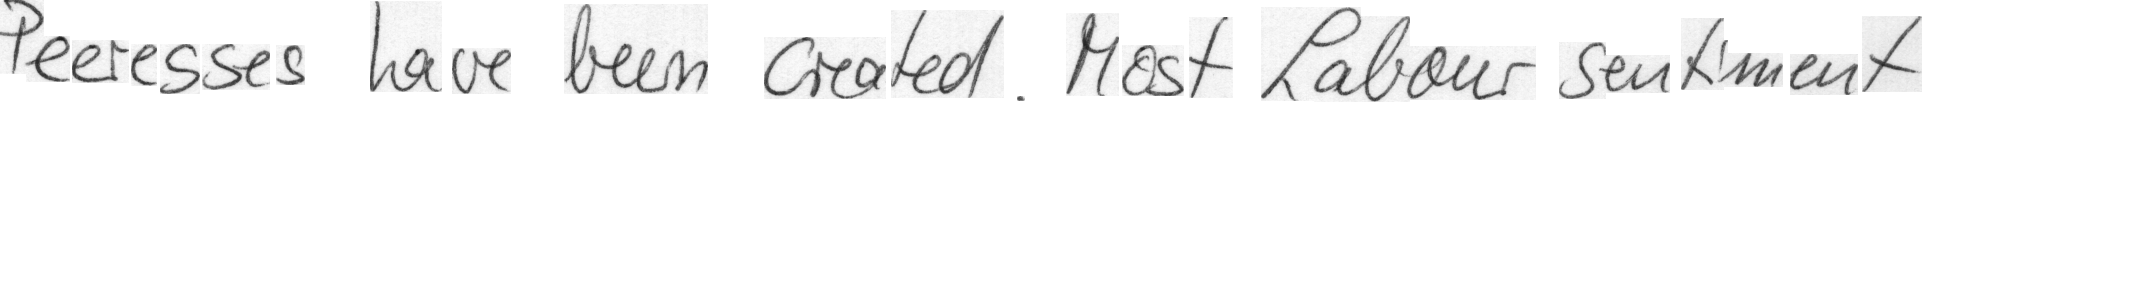 Peeresses have been created. Most Labour sentiment